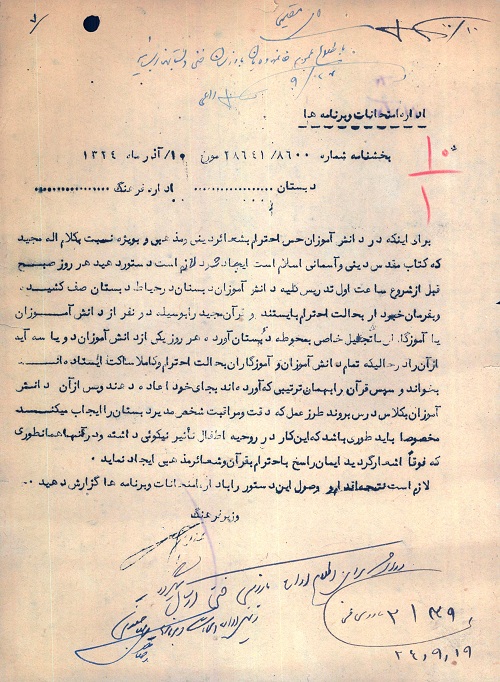 اداره امتحانات و برنامه ها
بخشنامه شماره ۲۸۶۴۱/۸۶۰۰ مورخ ۱۰/آذر ماه ۱۳۲۴
دبستان .................. اداره فرهنگ ..................
برای اینکه در دانش آموزان حس احترام بشعائر دینی و مذهبی و بویژه نسبت بکلام اله مجید
که کتاب مقدس دینی و آسمانی اسلام است ایجاد لازم است دستور دهید هر روز صبح
قبل از شروع ساعت اول تدریس کلیه دانش آموزان دبستان در حیاط دبستان صف کشیده
و بفرمان خبردار بحالت احترام بایستند و قرآن مجید را بوسیله دو نفر از دانش آموزان
یا آموزگاران با تجلیل خاصی بمحوطه دبستان آورده هر روز یکی از دانش آموزان دو یا سه آیه
از آن را در حالیکه تمام دانش آموزان و آموزگاران بحالت احترام و کاملا ساکت ایستاده اند
بخواند و سپس قرآن را بهمان ترتیبی که آورده اند بجای خود اعاده دهند و پس از آن دانش
آموزان بکلاس درس بروند طرز عمل که دقت و مراقبت شخص مدیر دبستان را ایجاب میکند
مخصوصا باید طوری باشد که این کار در روحیه اطفال تأثیر نیکوئی داشته و در آنها همانطوری
که فوقاً اشعار گردید ایمان راسخ با احترام بقرآن و شعائر مذهبی ایجاد نماید.
لازم است وصول این دستور را باداره امتحانات و برنامه ها گزارش دهید.
وزیر فرهنگ
۲۱۳۹
۲۴,۹,۱۹